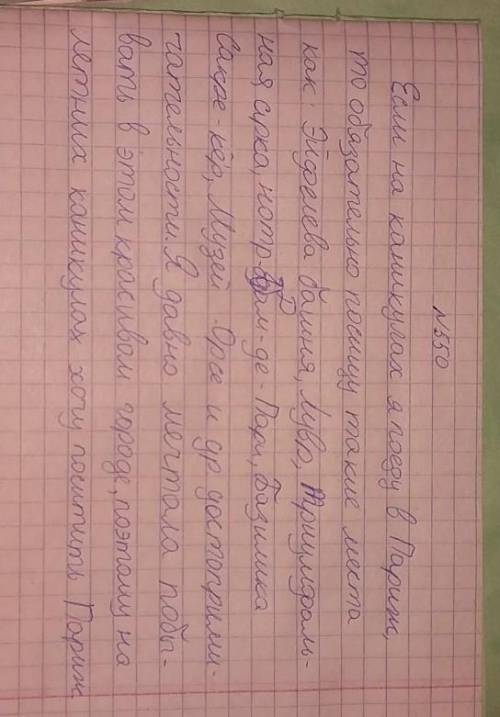 №550
Если на каникулах я поеду в Париж,
то обязательно посищу такие места
как: Эйфелева башня, Лувр, Триумфаль-
ная арка, нотр-Дам-де-Пари, базилика
Сакре-кёр, Музей Орсе и др достоприми-
чательности. Я давно мечтала побы-
вать в этом красивом городе, поэтому на
летних каникулах хочу поситить Париж